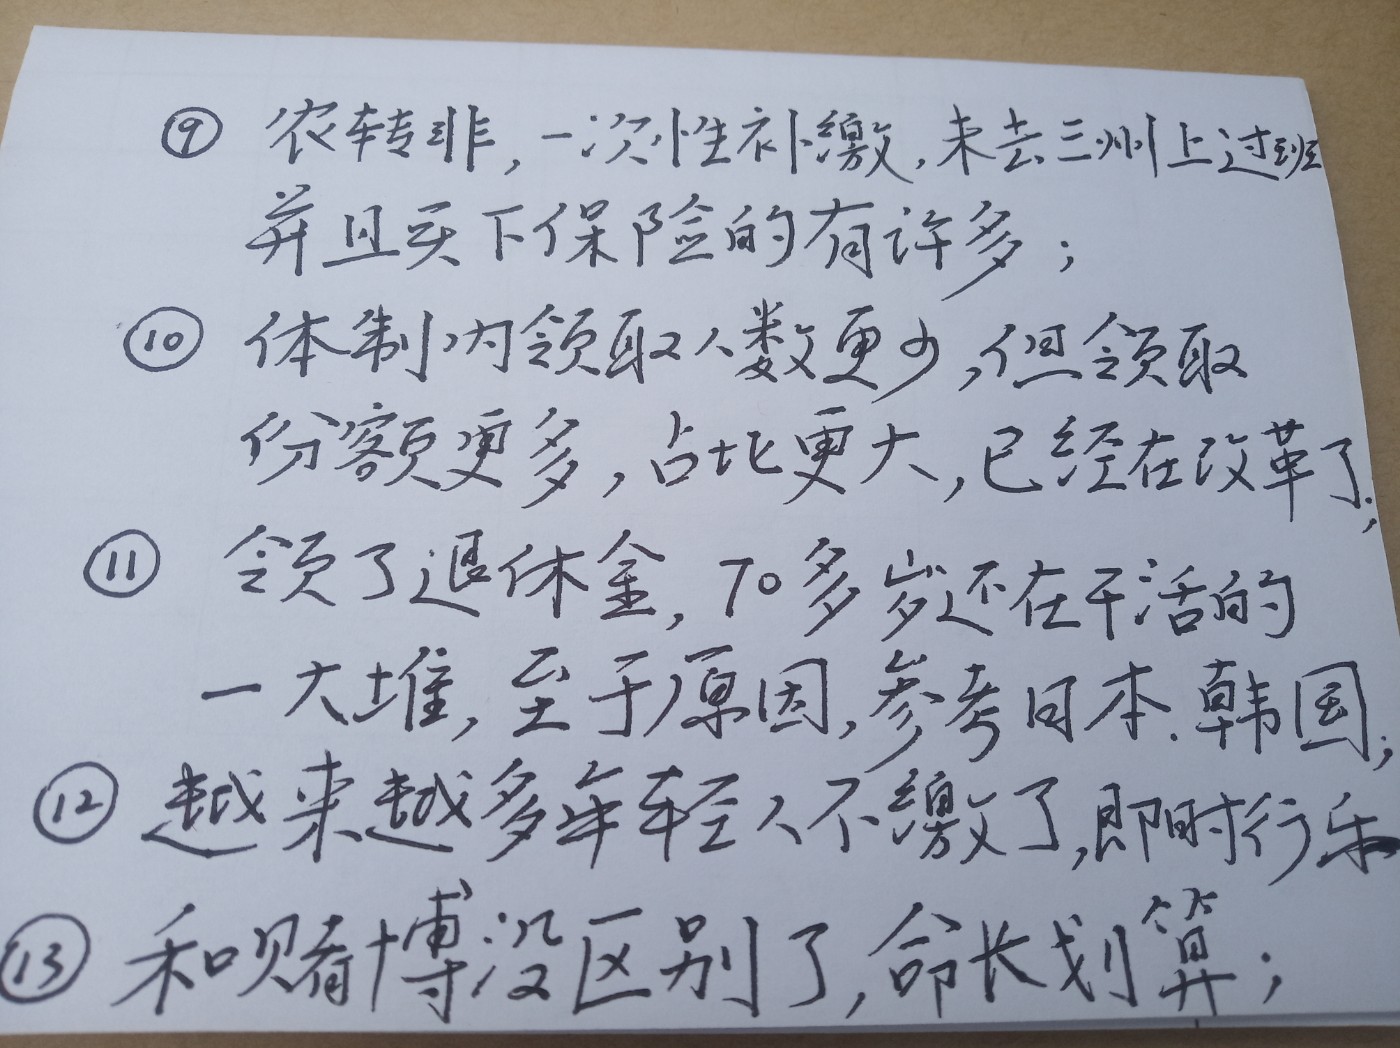 ⑨ 农转非,一次性补缴,未去三州上过班
并且买下保险的有许多;
⑩ 体制内领取人数更少,但领取
份额更多,占比更大,已经在改革了;
⑪ 领了退休金,70多岁还在干活的
一大堆,至于原因,参考日本.韩国;
⑫ 越来越多年轻人不缴了,即时行乐
⑬ 和赌博没区别了,命长划算;